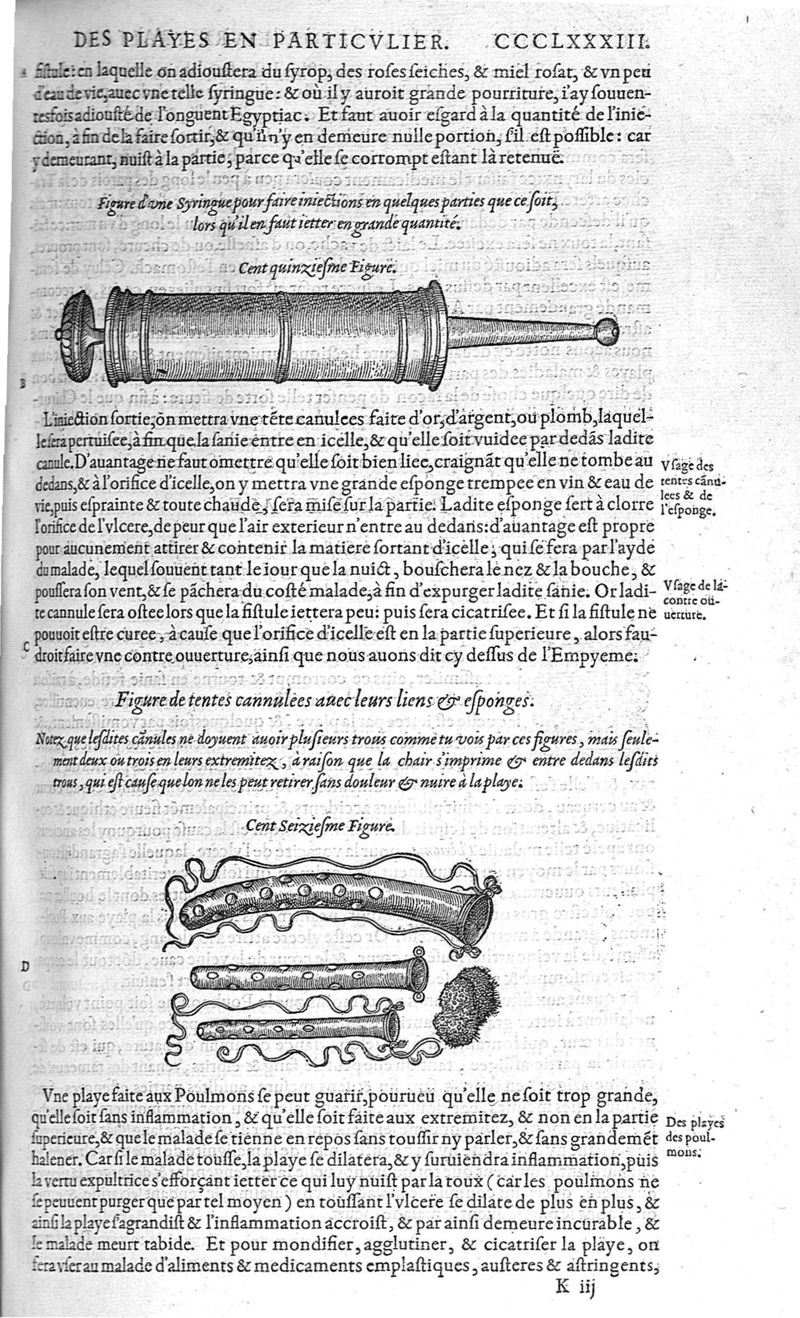 DES PLAYES EN PARTICVLIER. CCCLXXXIII.
fistule: en laquelle on adioustera du syrop, des roses seiches, & miel rosat, & vn peu
d'eau de vie, auec vne telle syringue: & où il y auroit grande pourriture, i'ay souuen-
tesfois adiousté de l'onguent Egyptiac. Et faut auoir esgard à la quantité de l'inie-
ction, à fin de la faire sortir, & qu'il n'y en demeure nulle portion, s'il est possible: car
y demeurant, nuist à la partie, parce qu'elle se corrompt estant là retenuë.
Figure d'vne Syringue pour faire iniections en quelques parties que ce soit,
lors qu'il en faut ietter en grande quantité.
Cent quinziesme Figure.
B
L'iniection sortie, õn mettra vne tẽte canulees faite d'or, d'argent, ou plomb, laquel-
le sera pertuisee, à fin que la sanie entre en icelle, & qu'elle soit vuidee par dedãs ladite
canule. D'auantage ne faut omettre qu'elle soit bien liee, craignãt qu'elle ne tombe au
dedans, & à l'orifice d'icelle, on y mettra vne grande esponge trempee en vin & eau de
vie, puis esprainte & toute chaude, sera mise sur la partie. Ladite esponge sert à clorre
l'orifice de l'vlcere, de peur que l'air exterieur n'entre au dedans: d'auantage est propre
pour aucunement attirer & contenir la matiere sortant d'icelle, qui se fera par l'ayde
du malade, lequel souuent tant le iour que la nuict, bouschera le nez & la bouche, &
poussera son vent, & se pãchera du costé malade, à fin d'expurger ladite sanie. Or ladi-
te cannule sera ostee lors que la fistule iettera peu: puis sera cicatrisee. Et si la fistule ne
pouuoit estre curee, à cause que l'orifice d'icelle est en la partie superieure, alors fau-
droit faire vne contre ouuerture, ainsi que nous auons dit cy dessus de l'Empyeme.
Vsage des
tentes cãnu-
lees & de
l'esponge.
Vsage de la
contre ou-
uerture.
C
Figure de tentes cannulees auec leurs liens & esponges.
Notez que lesdites cãnules ne doyuent auoir plusieurs trous comme tu vois par ces figures, mais seule-
ment deux ou trois en leurs extremitez, à raison que la chair s'imprime & entre dedans lesdits
trous, qui est cause que lon ne les peut retirer sans douleur & nuire à la playe.
Cent Seiziesme Figure.
D
Vne playe faite aux Poulmons se peut guarir, pourueu qu'elle ne soit trop grande,
qu'elle soit sans inflammation, & qu'elle soit faite aux extremitez, & non en la partie
superieure, & que le malade se tienne en repos sans toussir ny parler, & sans grandemẽt
halener. Car si le malade tousse, la playe se dilatera, & y suruiendra inflammation, puis
la vertu expultrice s'efforçant ietter ce qui luy nuist par la toux (car les poulmons ne
se peuuent purger que par tel moyen) en toussant l'vlcere se dilate de plus en plus, &
ainsi la playe s'agrandist & l'inflammation accroist, & par ainsi demeure incurable, &
le malade meurt tabide. Et pour mondifier, agglutiner, & cicatriser la playe, on
fera vser au malade d'aliments & medicaments emplastiques, austeres & astringents,
Des playes
des poul-
mons.
K iij